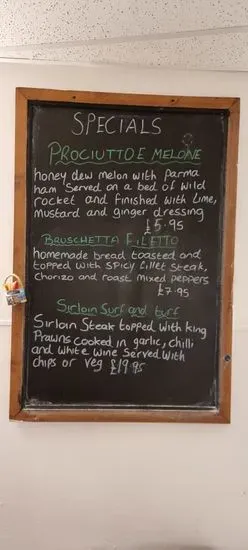 SPECIALS
PROCIUTTO E MELONE
honey dew melon with parma
ham Served on a bed of wild
rocket and finished with Lime,
mustard and ginger dressing
£5.95
BRUSCHETTA FILETTO
homemade bread toasted and
topped with spicy fillet steak,
chorizo and roast mixed peppers
£7.95
Sirloin Surf and turf
Sirloin Steak topped with king
Prawns cooked in garlic, chilli
and white wine Served with
chips or veg £19.95